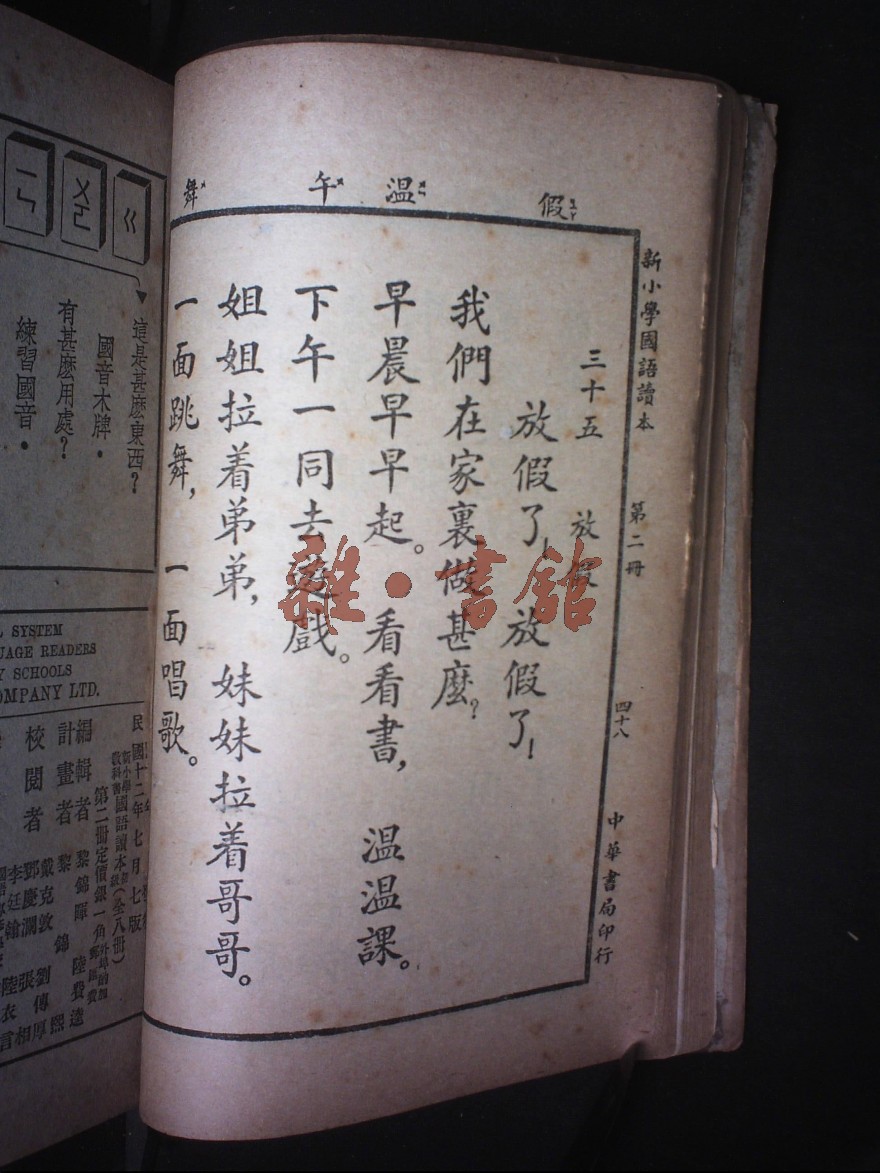 新小學國語讀本 第二冊 四十八 中華書局印行
假 温 午 舞
三十五 放假
放假了！放假了！
我們在家裏做甚麽？
早晨早早起。看看書，温温課。
下午一同去遊戲。
姐姐拉着弟弟，妹妹拉着哥哥。
一面跳舞，一面唱歌。
雜·書館
ㄍ ㄨㄛ ㄧㄣ
這是甚麽東西？
國音木牌．
有甚麽用處？
練習國音．
SYSTEM
UAGE READERS
Y SCHOOLS
COMPANY LTD.
民國十二年七月七版
新小學教科書國語讀本（全八冊）
第二冊定價銀一角
編輯者 黎錦暉 陸費逵
計畫者 黎錦熙
校閱者 戴克敦 劉傳厚
鄭慶瀾 張相
李廷翰 陸衣言